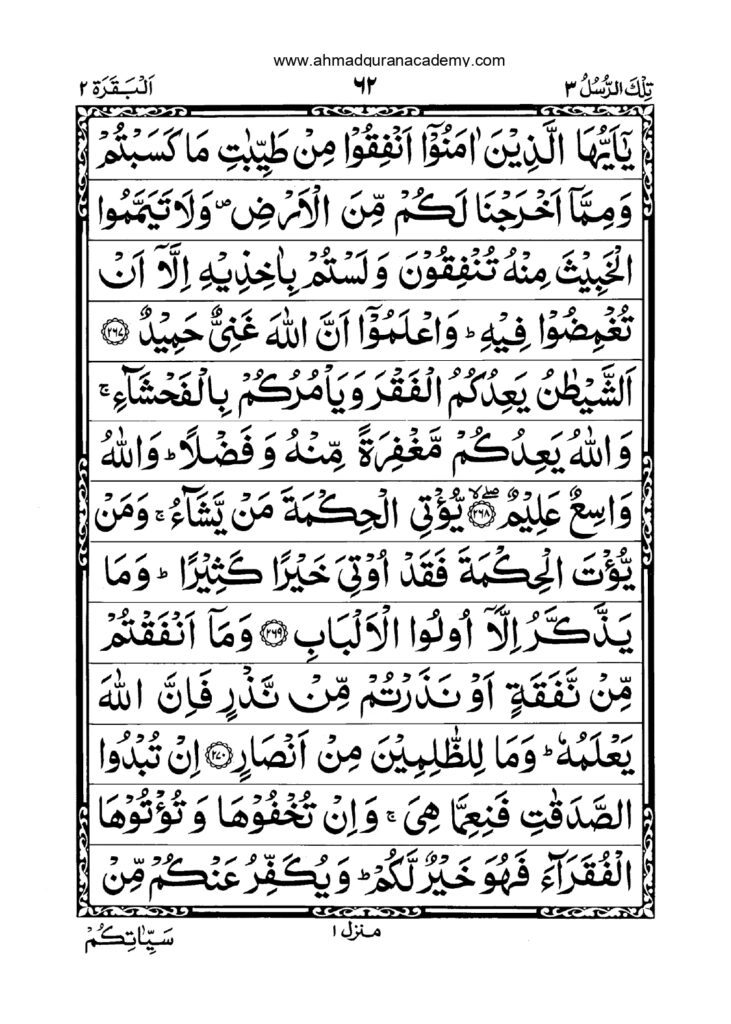 www.ahmadquranacademy.com
تِلْكَ الرُّسُلُ ٣ ٦٢ اَلْبَقَرَة ٢
يٰۤاَيُّهَا الَّذِيْنَ اٰمَنُوْۤا اَنْفِقُوْا مِنْ طَيِّبٰتِ مَا كَسَبْتُمْ
وَمِمَّاۤ اَخْرَجْنَا لَكُمْ مِّنَ الْاَرْضِ ۪ وَلَا تَيَمَّمُوا
الْخَبِيْثَ مِنْهُ تُنْفِقُوْنَ وَلَسْتُمْ بِاٰخِذِيْهِ اِلَّاۤ اَنْ
تُغْمِضُوْا فِيْهِ ؕ وَاعْلَمُوْۤا اَنَّ اللّٰهَ غَنِىٌّ حَمِيْدٌ ﴿٢٦٧﴾
اَلشَّيْطٰنُ يَعِدُكُمُ الْفَقْرَ وَيَاْمُرُكُمْ بِالْفَحْشَآءِ ۚ
وَاللّٰهُ يَعِدُكُمْ مَّغْفِرَةً مِّنْهُ وَفَضْلًا ؕ وَاللّٰهُ
وَاسِعٌ عَلِيْمٌ ﴿٢٦٨﴾ ۖۙ يُّؤْتِى الْحِكْمَةَ مَنْ يَّشَآءُ ۚ وَمَنْ
يُّؤْتَ الْحِكْمَةَ فَقَدْ اُوْتِىَ خَيْرًا كَثِيْرًا ؕ وَمَا
يَذَّكَّرُ اِلَّاۤ اُولُوا الْاَلْبَابِ ﴿٢٦٩﴾ وَمَاۤ اَنْفَقْتُمْ
مِّنْ نَّفَقَةٍ اَوْ نَذَرْتُمْ مِّنْ نَّذْرٍ فَاِنَّ اللّٰهَ
يَعْلَمُهٗ ؕ وَمَا لِلظّٰلِمِيْنَ مِنْ اَنْصَارٍ ﴿٢٧٠﴾ اِنْ تُبْدُوا
الصَّدَقٰتِ فَنِعِمَّا هِىَ ۚ وَاِنْ تُخْفُوْهَا وَتُؤْتُوْهَا
الْفُقَرَآءَ فَهُوَ خَيْرٌ لَّكُمْ ؕ وَيُكَفِّرُ عَنْكُمْ مِّنْ
منزل ١
سَيِّاٰتِكُمْ